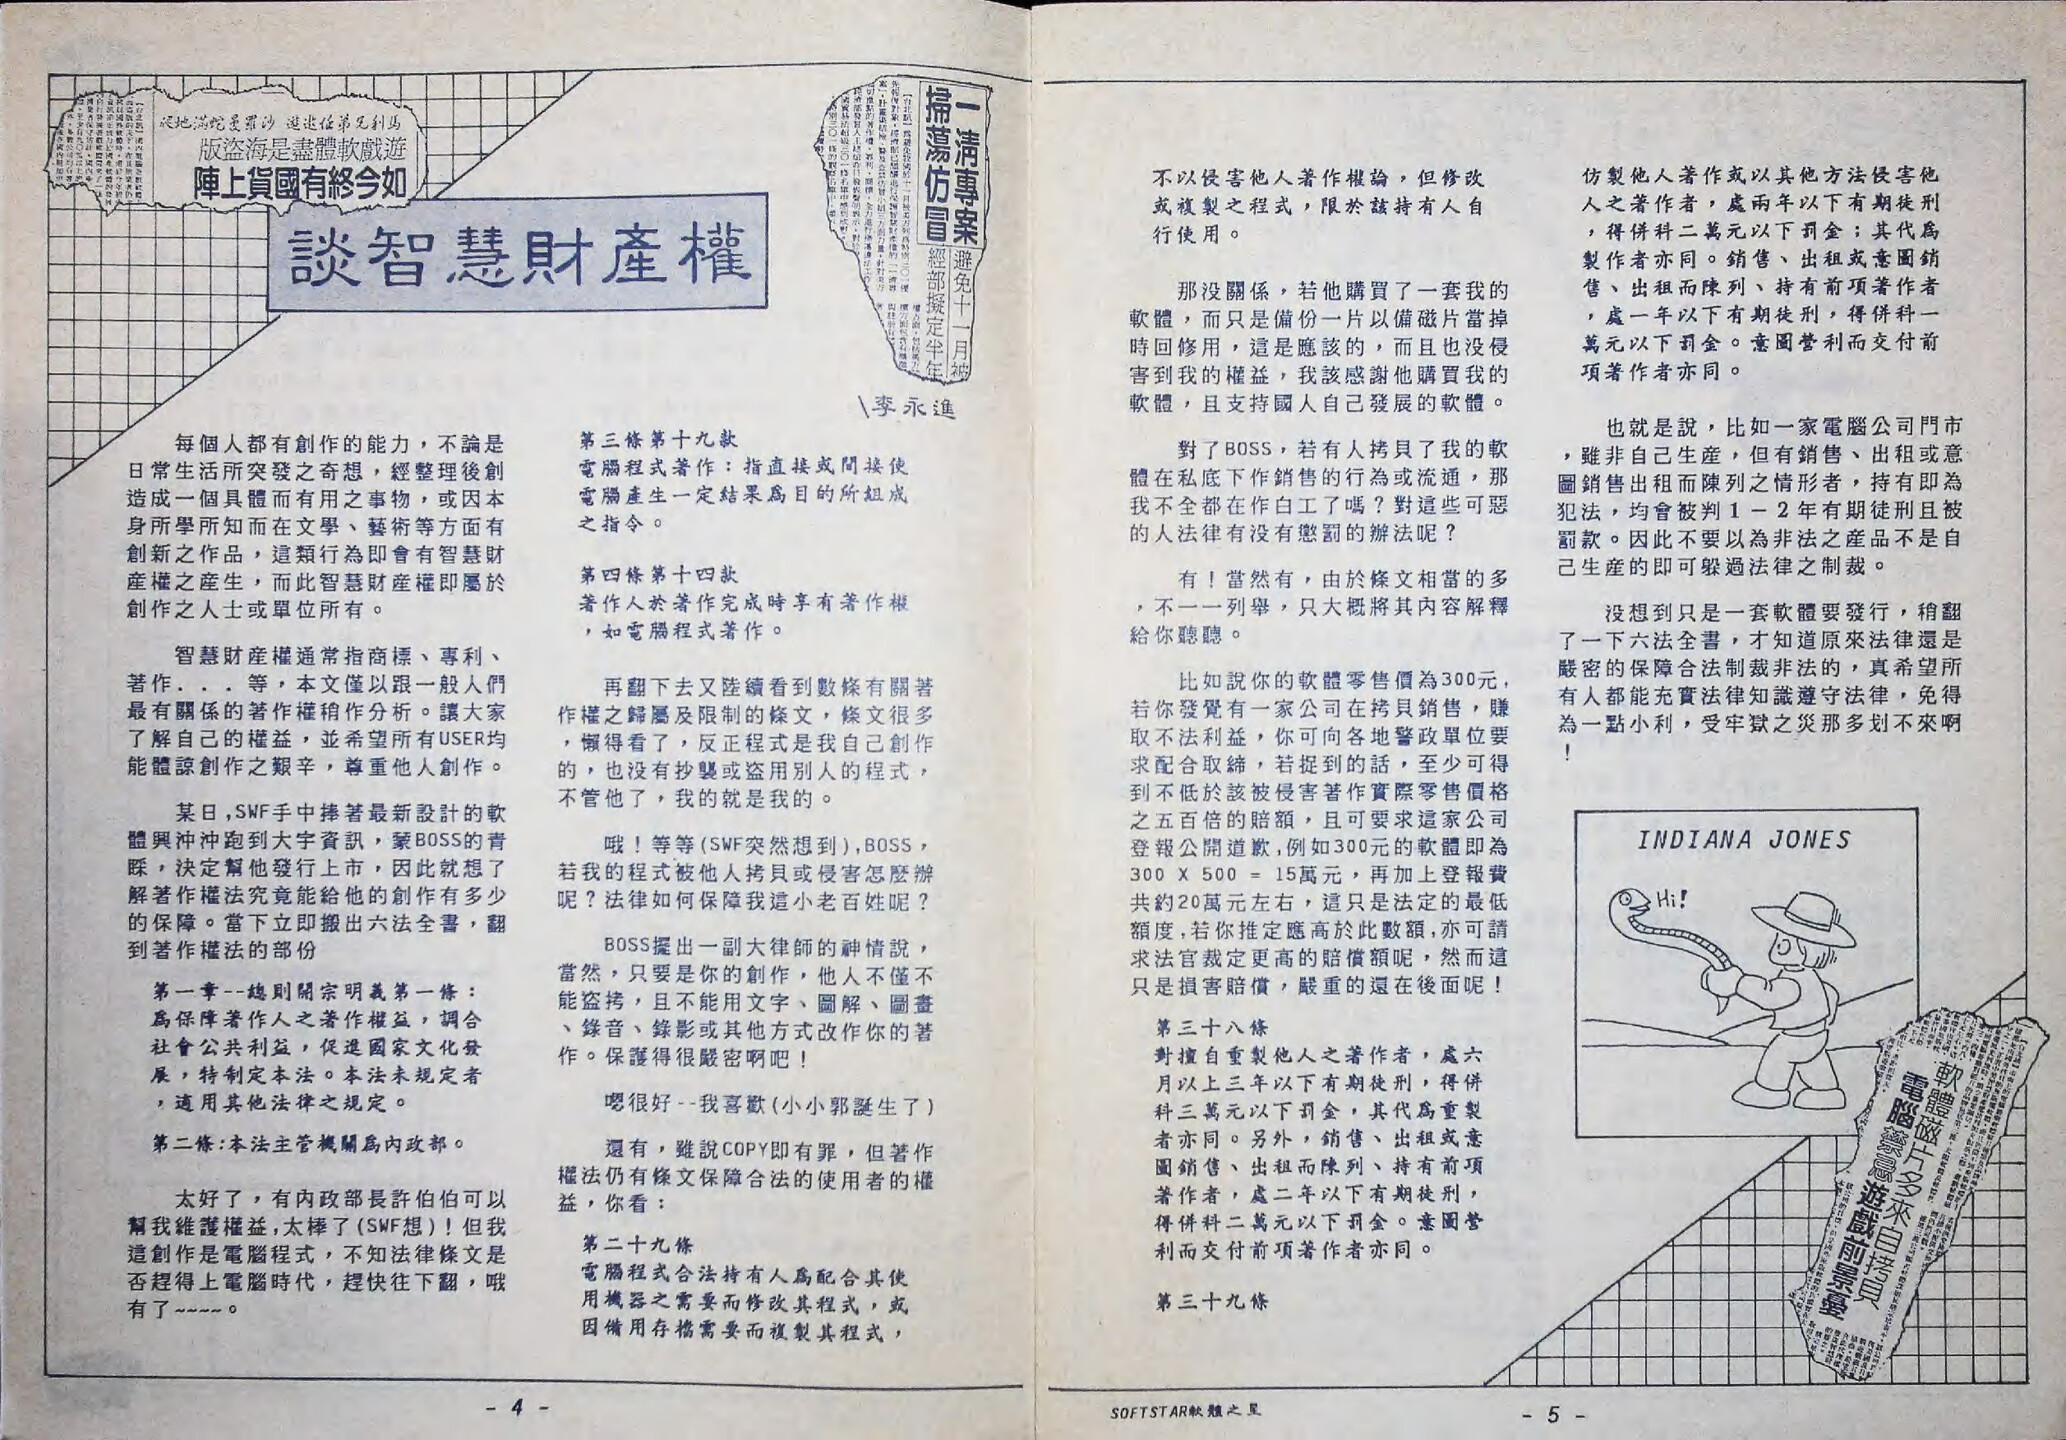 馬利兄弟任遨遊 沙羅曼蛇滿地爬
遊戲軟體盡是海盜版
如今終有國貨上陣
一清專案
掃蕩仿冒
避免十一月被
經部擬定半年
談智慧財產權
\李永進
每個人都有創作的能力，不論是
日常生活所突發之奇想，經整理後創
造成一個具體而有用之事物，或因本
身所學所知而在文學、藝術等方面有
創新之作品，這類行為即會有智慧財
產權之產生，而此智慧財產權即屬於
創作之人士或單位所有。
智慧財產權通常指商標、專利、
著作．．．等，本文僅以跟一般人們
最有關係的著作權稍作分析。讓大家
了解自己的權益，並希望所有USER均
能體諒創作之艱辛，尊重他人創作。
某日,SWF手中捧著最新設計的軟
體興沖沖跑到大宇資訊，蒙BOSS的青
睬，決定幫他發行上市，因此就想了
解著作權法究竟能給他的創作有多少
的保障。當下立即搬出六法全書，翻
到著作權法的部份
第一章--總則開宗明義第一條：
為保障著作人之著作權益，調合
社會公共利益，促進國家文化發
展，特制定本法。本法未規定者
，適用其他法律之規定。
第二條:本法主管機關為內政部。
太好了，有內政部長許伯伯可以
幫我維護權益,太棒了(SWF想)！但我
這創作是電腦程式，不知法律條文是
否趕得上電腦時代，趕快往下翻，哦
有了~~~~。
第三條第十九款
電腦程式著作：指直接或間接使
電腦產生一定結果為目的所組成
之指令。
第四條第十四款
著作人於著作完成時享有著作權
，如電腦程式著作。
再翻下去又陸續看到數條有關著
作權之歸屬及限制的條文，條文很多
，懶得看了，反正程式是我自己創作
的，也沒有抄襲或盜用別人的程式，
不管他了，我的就是我的。
哦！等等(SWF突然想到),BOSS，
若我的程式被他人拷貝或侵害怎麼辦
呢？法律如何保障我這小老百姓呢？
BOSS擺出一副大律師的神情說，
當然，只要是你的創作，他人不僅不
能盜拷，且不能用文字、圖解、圖畫
、錄音、錄影或其他方式改作你的著
作。保護得很嚴密啊吧！
嗯很好--我喜歡(小小郭誕生了)
還有，雖說COPY即有罪，但著作
權法仍有條文保障合法的使用者的權
益，你看：
第二十九條
電腦程式合法持有人為配合其使
用機器之需要而修改其程式，或
因備用存檔需要而複製其程式，
- 4 -
不以侵害他人著作權論，但修改
或複製之程式，限於該持有人自
行使用。
那沒關係，若他購買了一套我的
軟體，而只是備份一片以備磁片當掉
時回修用，這是應該的，而且也沒侵
害到我的權益，我該感謝他購買我的
軟體，且支持國人自己發展的軟體。
對了BOSS，若有人拷貝了我的軟
體在私底下作銷售的行為或流通，那
我不全都在作白工了嗎？對這些可惡
的人法律有沒有懲罰的辦法呢？
有！當然有，由於條文相當的多
，不一一列舉，只大概將其內容解釋
給你聽聽。
比如說你的軟體零售價為300元,
若你發覺有一家公司在拷貝銷售，賺
取不法利益，你可向各地警政單位要
求配合取締，若捉到的話，至少可得
到不低於該被侵害著作實際零售價格
之五百倍的賠額，且可要求這家公司
登報公開道歉,例如300元的軟體即為
300 X 500 = 15萬元，再加上登報費
共約20萬元左右，這只是法定的最低
額度,若你推定應高於此數額,亦可請
求法官裁定更高的賠償額呢，然而這
只是損害賠償，嚴重的還在後面呢！
第三十八條
對擅自重製他人之著作者，處六
月以上三年以下有期徒刑，得併
科三萬元以下罰金，其代為重製
者亦同。另外，銷售、出租或意
圖銷售、出租而陳列、持有前項
著作者，處二年以下有期徒刑，
得併科二萬元以下罰金。意圖營
利而交付前項著作者亦同。
第三十九條
仿製他人著作或以其他方法侵害他
人之著作者，處兩年以下有期徒刑
，得併科二萬元以下罰金；其代為
製作者亦同。銷售、出租或意圖銷
售、出租而陳列、持有前項著作者
，處一年以下有期徒刑，得併科一
萬元以下罰金。意圖營利而交付前
項著作者亦同。
也就是說，比如一家電腦公司門市
，雖非自己生產，但有銷售、出租或意
圖銷售出租而陳列之情形者，持有即為
犯法，均會被判１－２年有期徒刑且被
罰款。因此不要以為非法之產品不是自
己生產的即可躲過法律之制裁。
沒想到只是一套軟體要發行，稍翻
了一下六法全書，才知道原來法律還是
嚴密的保障合法制裁非法的，真希望所
有人都能充實法律知識遵守法律，免得
為一點小利，受牢獄之災那多划不來啊
！
INDIANA JONES
Hi!
軟體磁片多來自拷貝
電腦禁忌遊戲前景憂
SOFTSTAR軟體之星
- 5 -